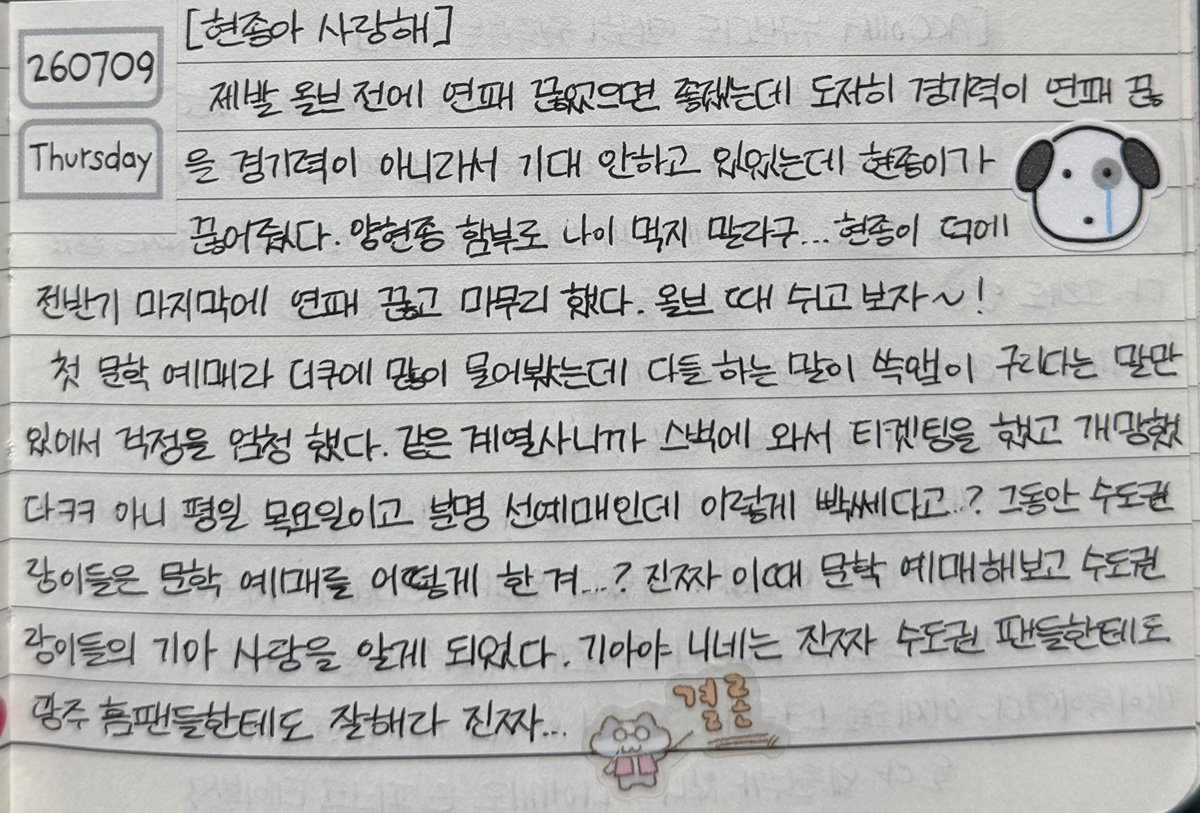 [현종아 사랑해]
260709
제발 올브 전에 연패 끊었으면 좋겠는데 도저히 경기력이 연패 끊
Thursday
을 경기력이 아니라서 기대 안하고 있었는데 현종이가
끊어줬다. 양현종 함부로 나이 먹지 말라구... 현종이 덕에
전반기 마지막에 연패 끊고 마무리 했다. 올브 때 쉬고 보자~!
첫 문학 예매라 더쿠에 많이 물어봤는데 다들 하는 말이 쓱앱이 구리다는 말만
있어서 걱정을 엄청 했다. 같은 계열사니까 스벅에 와서 티켓팅을 했고 개망했
다ㅋㅋ 아니 평일 목요일이고 분명 선예매인데 이렇게 빡쎄다고..? 그동안 수도권
랑이들은 문학 예매를 어떻게 한 겨...? 진짜 이때 문학 예매해보고 수도권
랑이들의 기아 사랑을 알게 되었다. 기아야 니네는 진짜 수도권 팬들한테도
광주 홈팬들한테도 잘해라 진짜...
결론